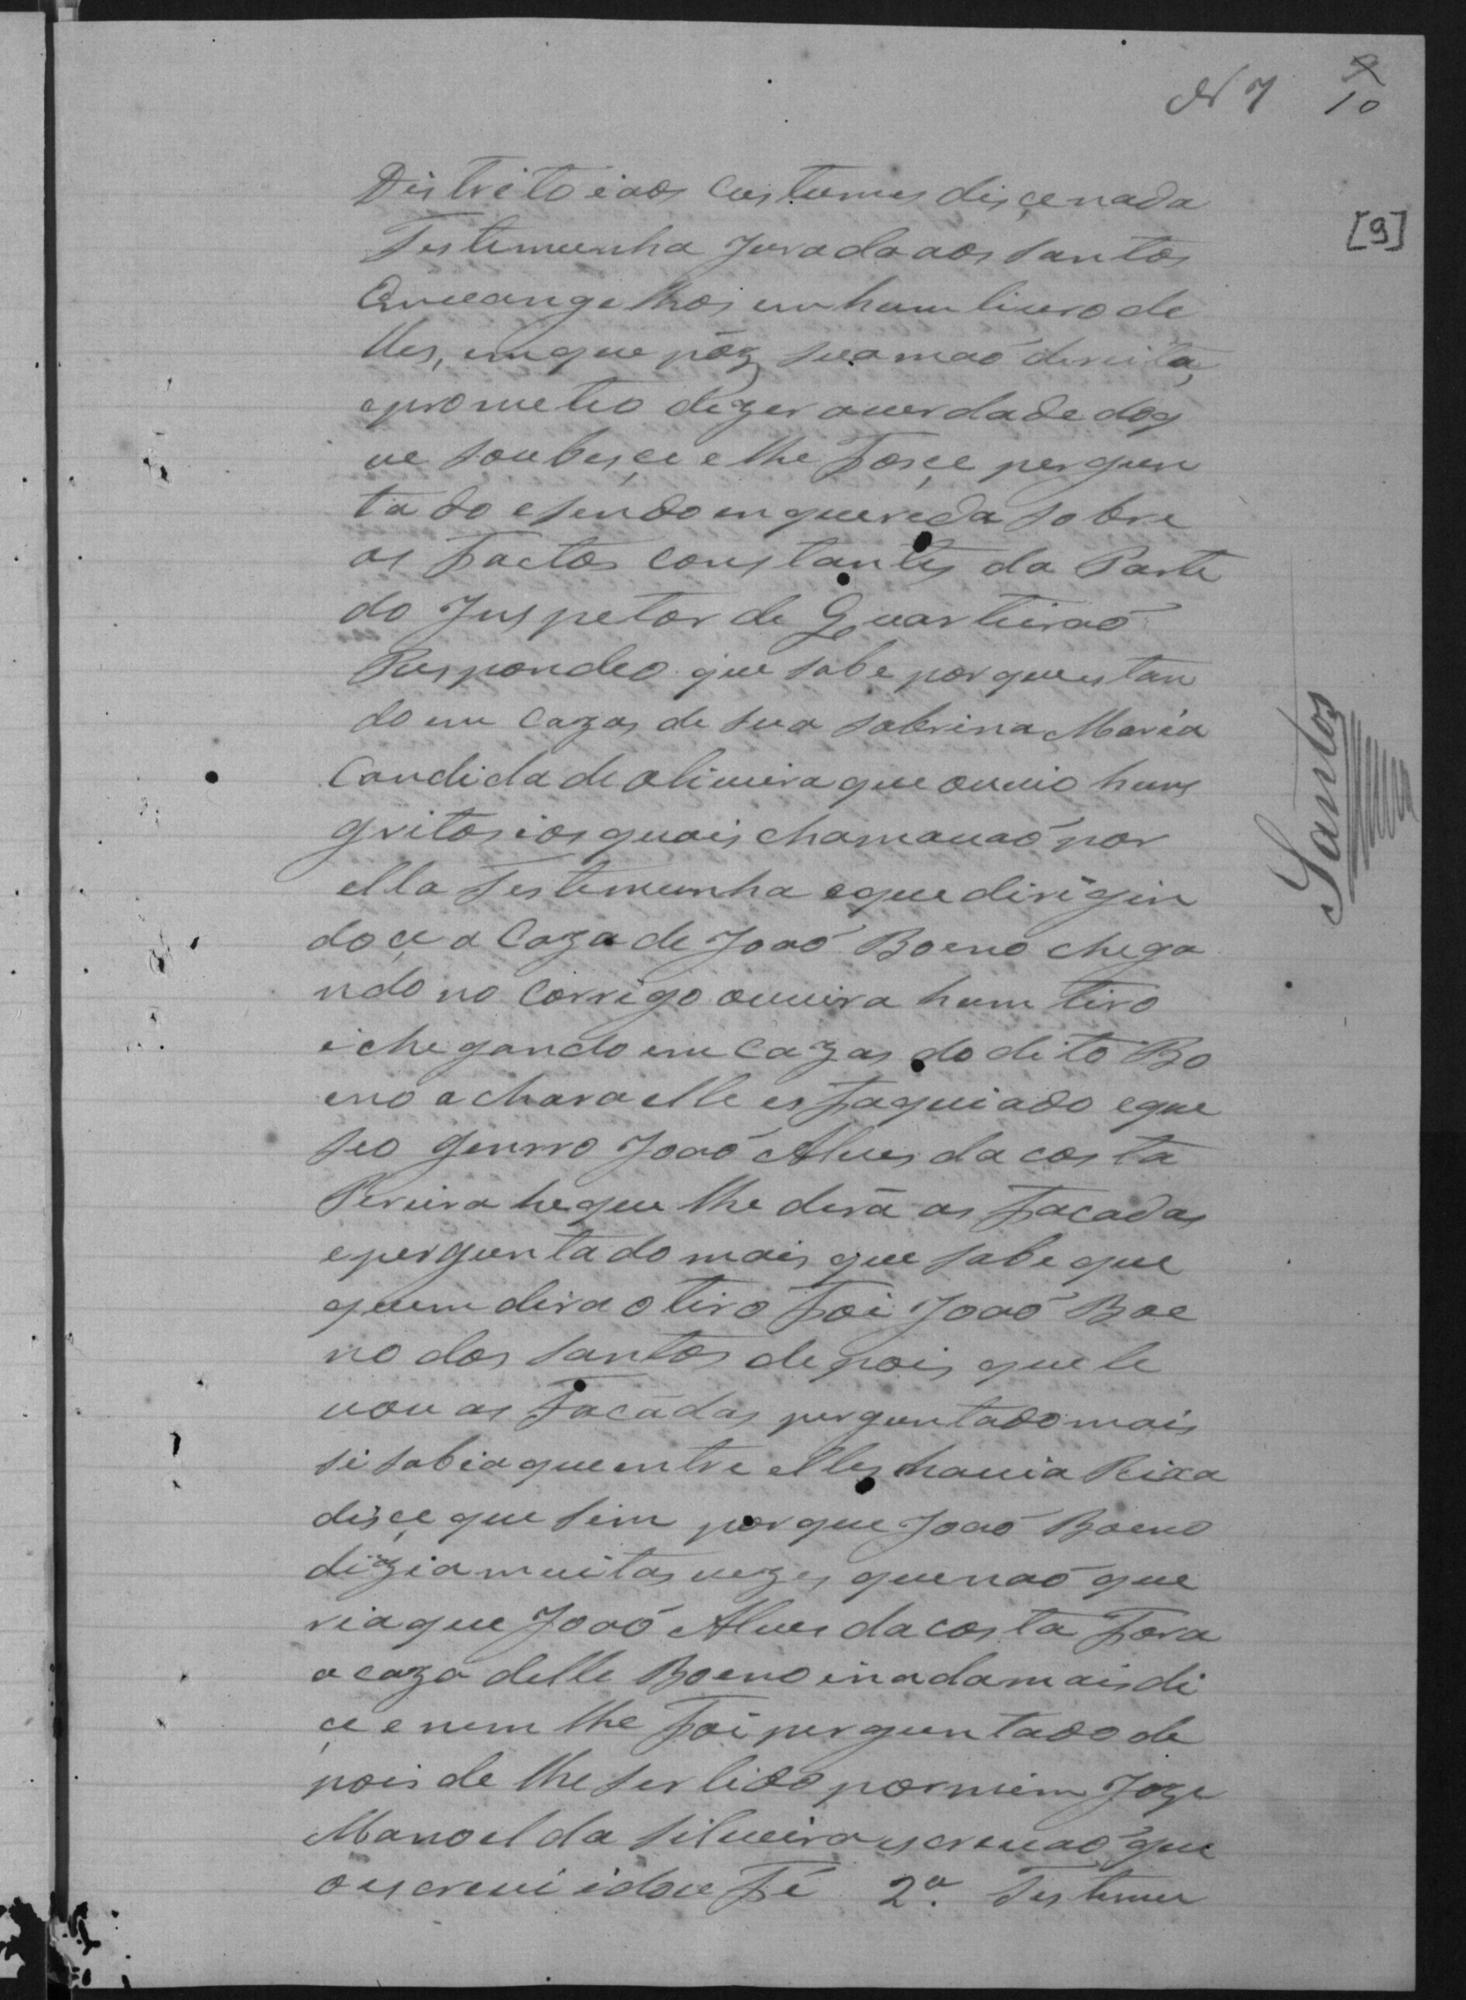 N 7
9
10
[9]
Distrito i aos Custumes disçe nada
Testimunha Jurada aos Santos
Envangelhos em hum livero de
lles, em que pôz sua maó dereita,
e prometeo dizer a verdade do q
ue soubesçe e lhe fosçe pergun
tado e sendo enquerida sobre
os factos constantes da Parte
do Juspetor de Quarteiraó
Respondeo que sabe por que estan
do em cazas de sua sobrina Maria
Candida de olivera que ouvio huns
gritos i os quais chamavaó por
ella Testimunha e que dirigin
doçe a Caza de Joaó Boeno chega
ndo no Corrigo ouvira hum tiro
i chegando em Cazas do dito Bo
eno achara elle esfaquiado e que
seo genrro Joaó Alves da costa
Pereira he que lhe dera as facadas
e perguntado mais que sabe que
quem dera o tiro foi Joaó Boe
no dos Santos depois que le
vou as facadas perguntado mais
si sabia que entre elles havia Rixa
disçe que sim por que Joaó Boeno
dizia muitas vezes que naó que
ria que Joaó Alves da costa fora
a caza delle Boeno i nada mais di
çe e nem lhe foi perguntado de
pois de lhe ser lido por mim Joze
Manoel da Silveira escrevaó que
o escrevi i dou Fé 2ª. Testimu
Santos